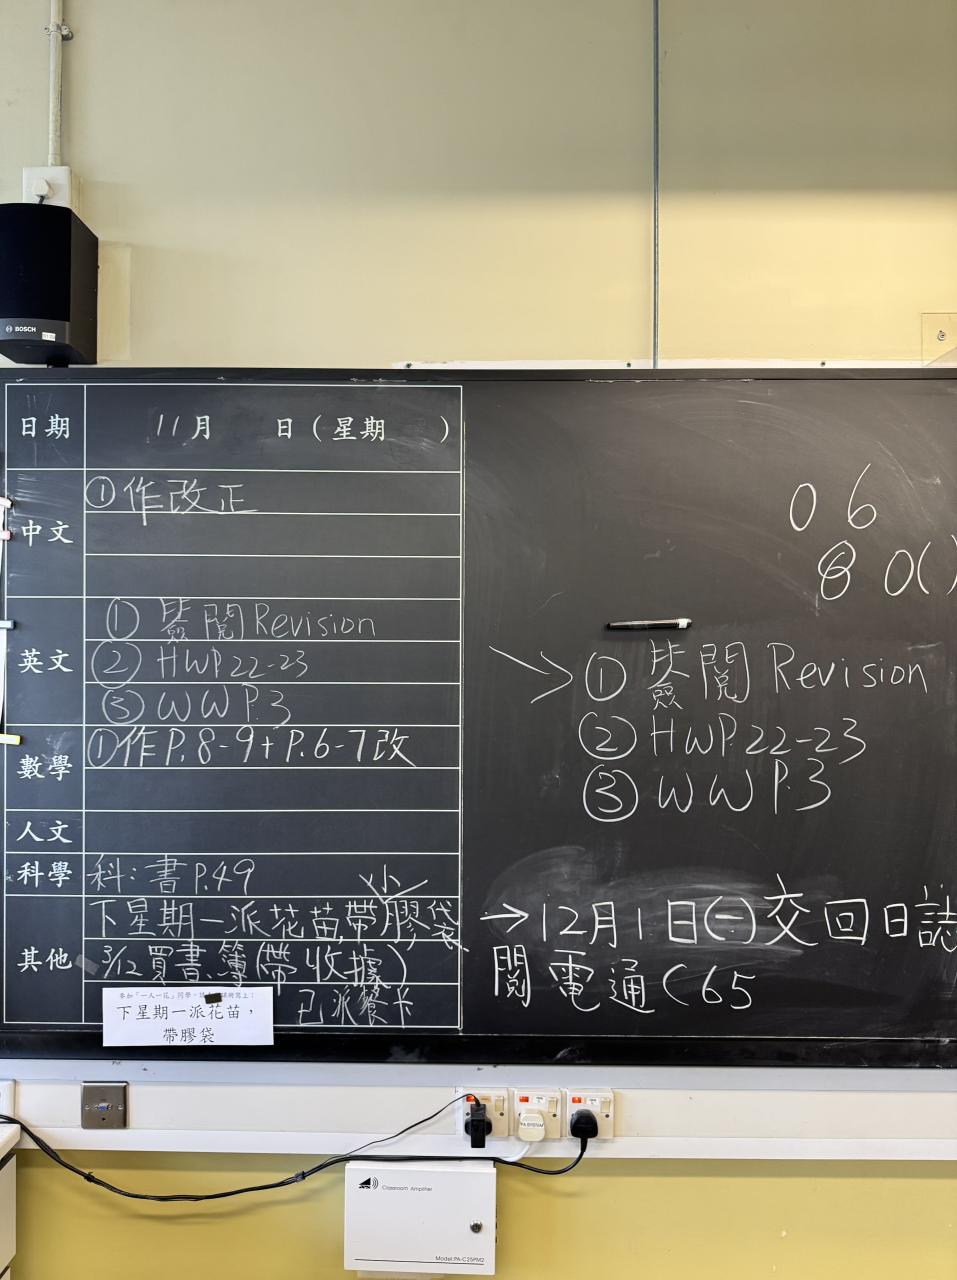 BOSCH
日期 11月 日(星期 )
中文 ①作改正
英文 ①簽閱Revision
②HWP.22-23
③WWP.3
數學 ①作P.8-9+P.6-7改
人文
科學 科:書P.49
其他 下星期一派花苗,帶小膠袋
3/12買書、簿(帶收據)
已派餐卡
下星期一派花苗,
帶膠袋
06
80()
①簽閱Revision
②HWP.22-23
③WWP.3
→12月1日(一)交回日誌
閱電通C65
PA SYSTEM
Classroom Amplifier
Model:PA-C25PM2